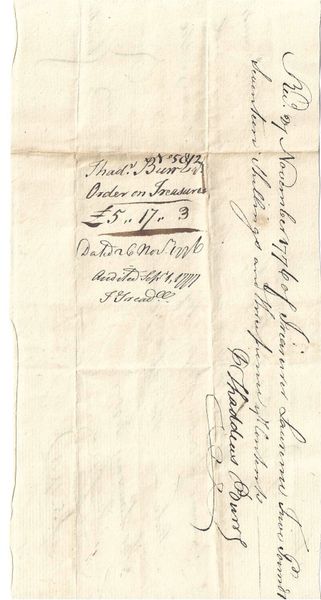 No 5812
Thads Burr Esqr
Order on Treasurer
£5,, 17,, 3
Dated 26 Novr 1776
Audited Sept 1, 1777
J Treadll
Recd 27 November 1776 of Treasurer Lawrence Five Pd
Seventeen Shillings and three pence of Contents
Pr Thaddeus Burr